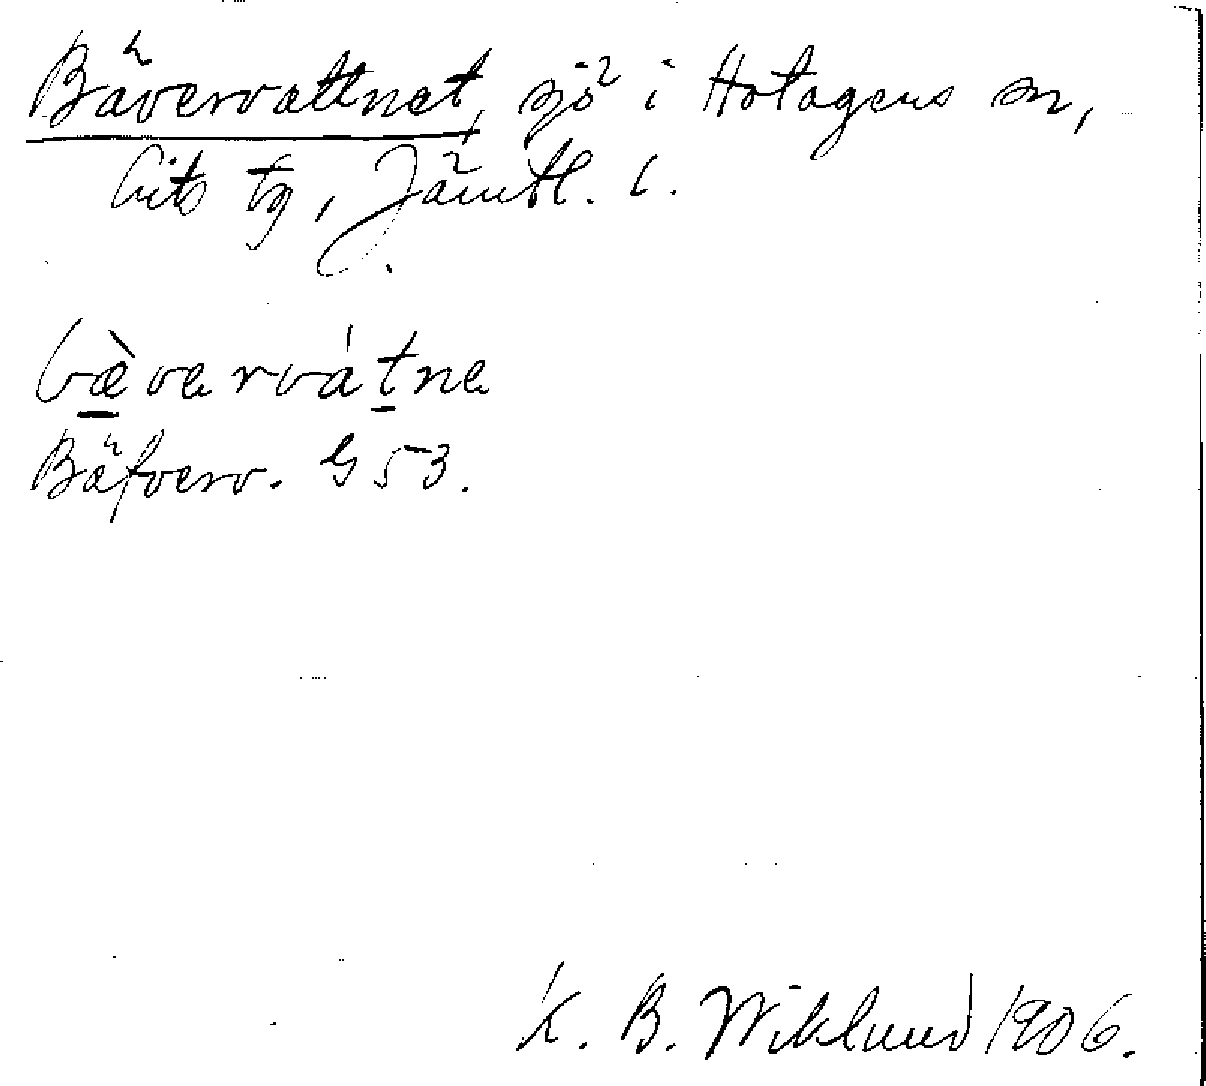 Bävervattnet, sjö i Hotagens sn,
Lits tg, Jämtl. l.
bæ̱̀vervát̲ne
Bäfverv. G 53.
K. B. Wiklund 1906.